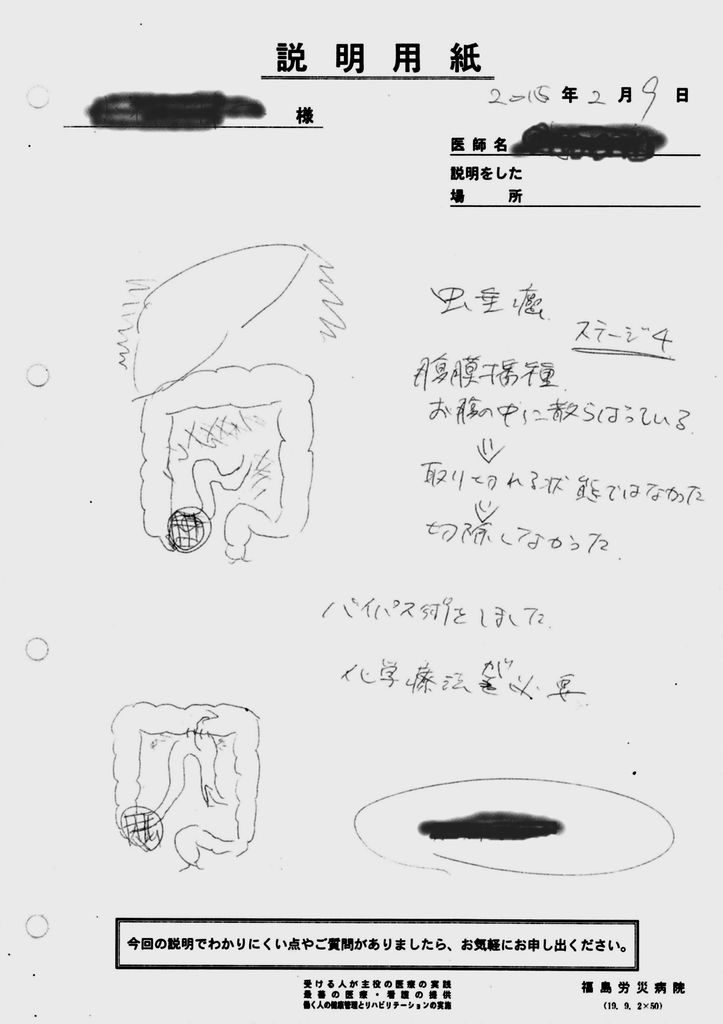 説明用紙
様
2015年2月9日
医師名
説明をした
場所
虫垂癌
ステージ4
腹膜播種
お腹の中に散らばっている
取り切れる状態ではなかった
切除しなかった
バイパス術をしました
化学療法が必要
今回の説明でわかりにくい点やご質問がありましたら、お気軽にお申し出ください。
受ける人が主役の医療の実践
最善の医療・看護の提供
働く人の健康管理とリハビリテーションの実施
福島労災病院
(19. 9. 2×50)